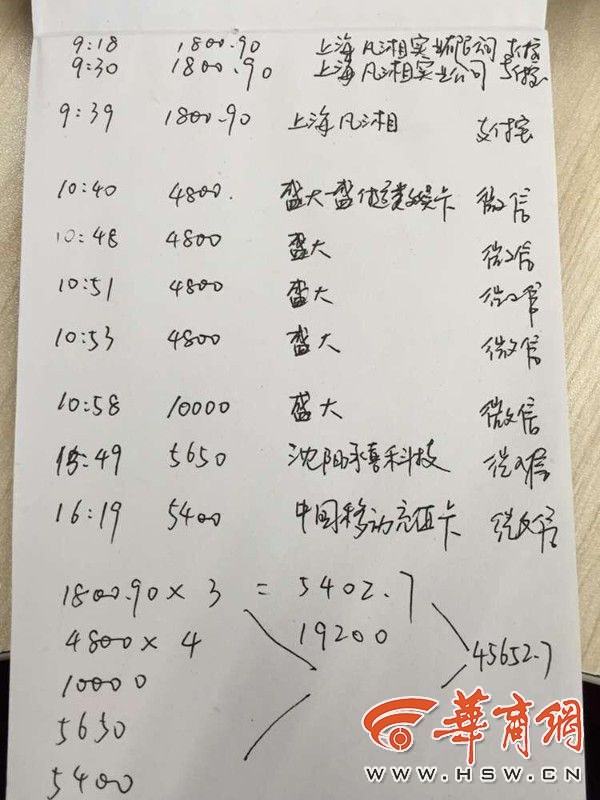 9:18 1800.90 上海凡湘实业有限公司 支付宝
9:30 1800.90 上海凡湘实业公司 支付宝
9:39 1800.90 上海凡湘 支付宝
10:40 4800. 盛大盛付通娱卡 微信
10:48 4800 盛大 微信
10:51 4800 盛大 微信
10:53 4800 盛大 微信
10:58 10000 盛大 微信
15:49 5650 沈阳禾喜科技 微信
16:19 5400 中国移动充值卡 微信
1800.90 × 3 = 5402.7
4800 × 4 19200
45652.7
10000
5650
5400
華商網
WWW.HSW.CN